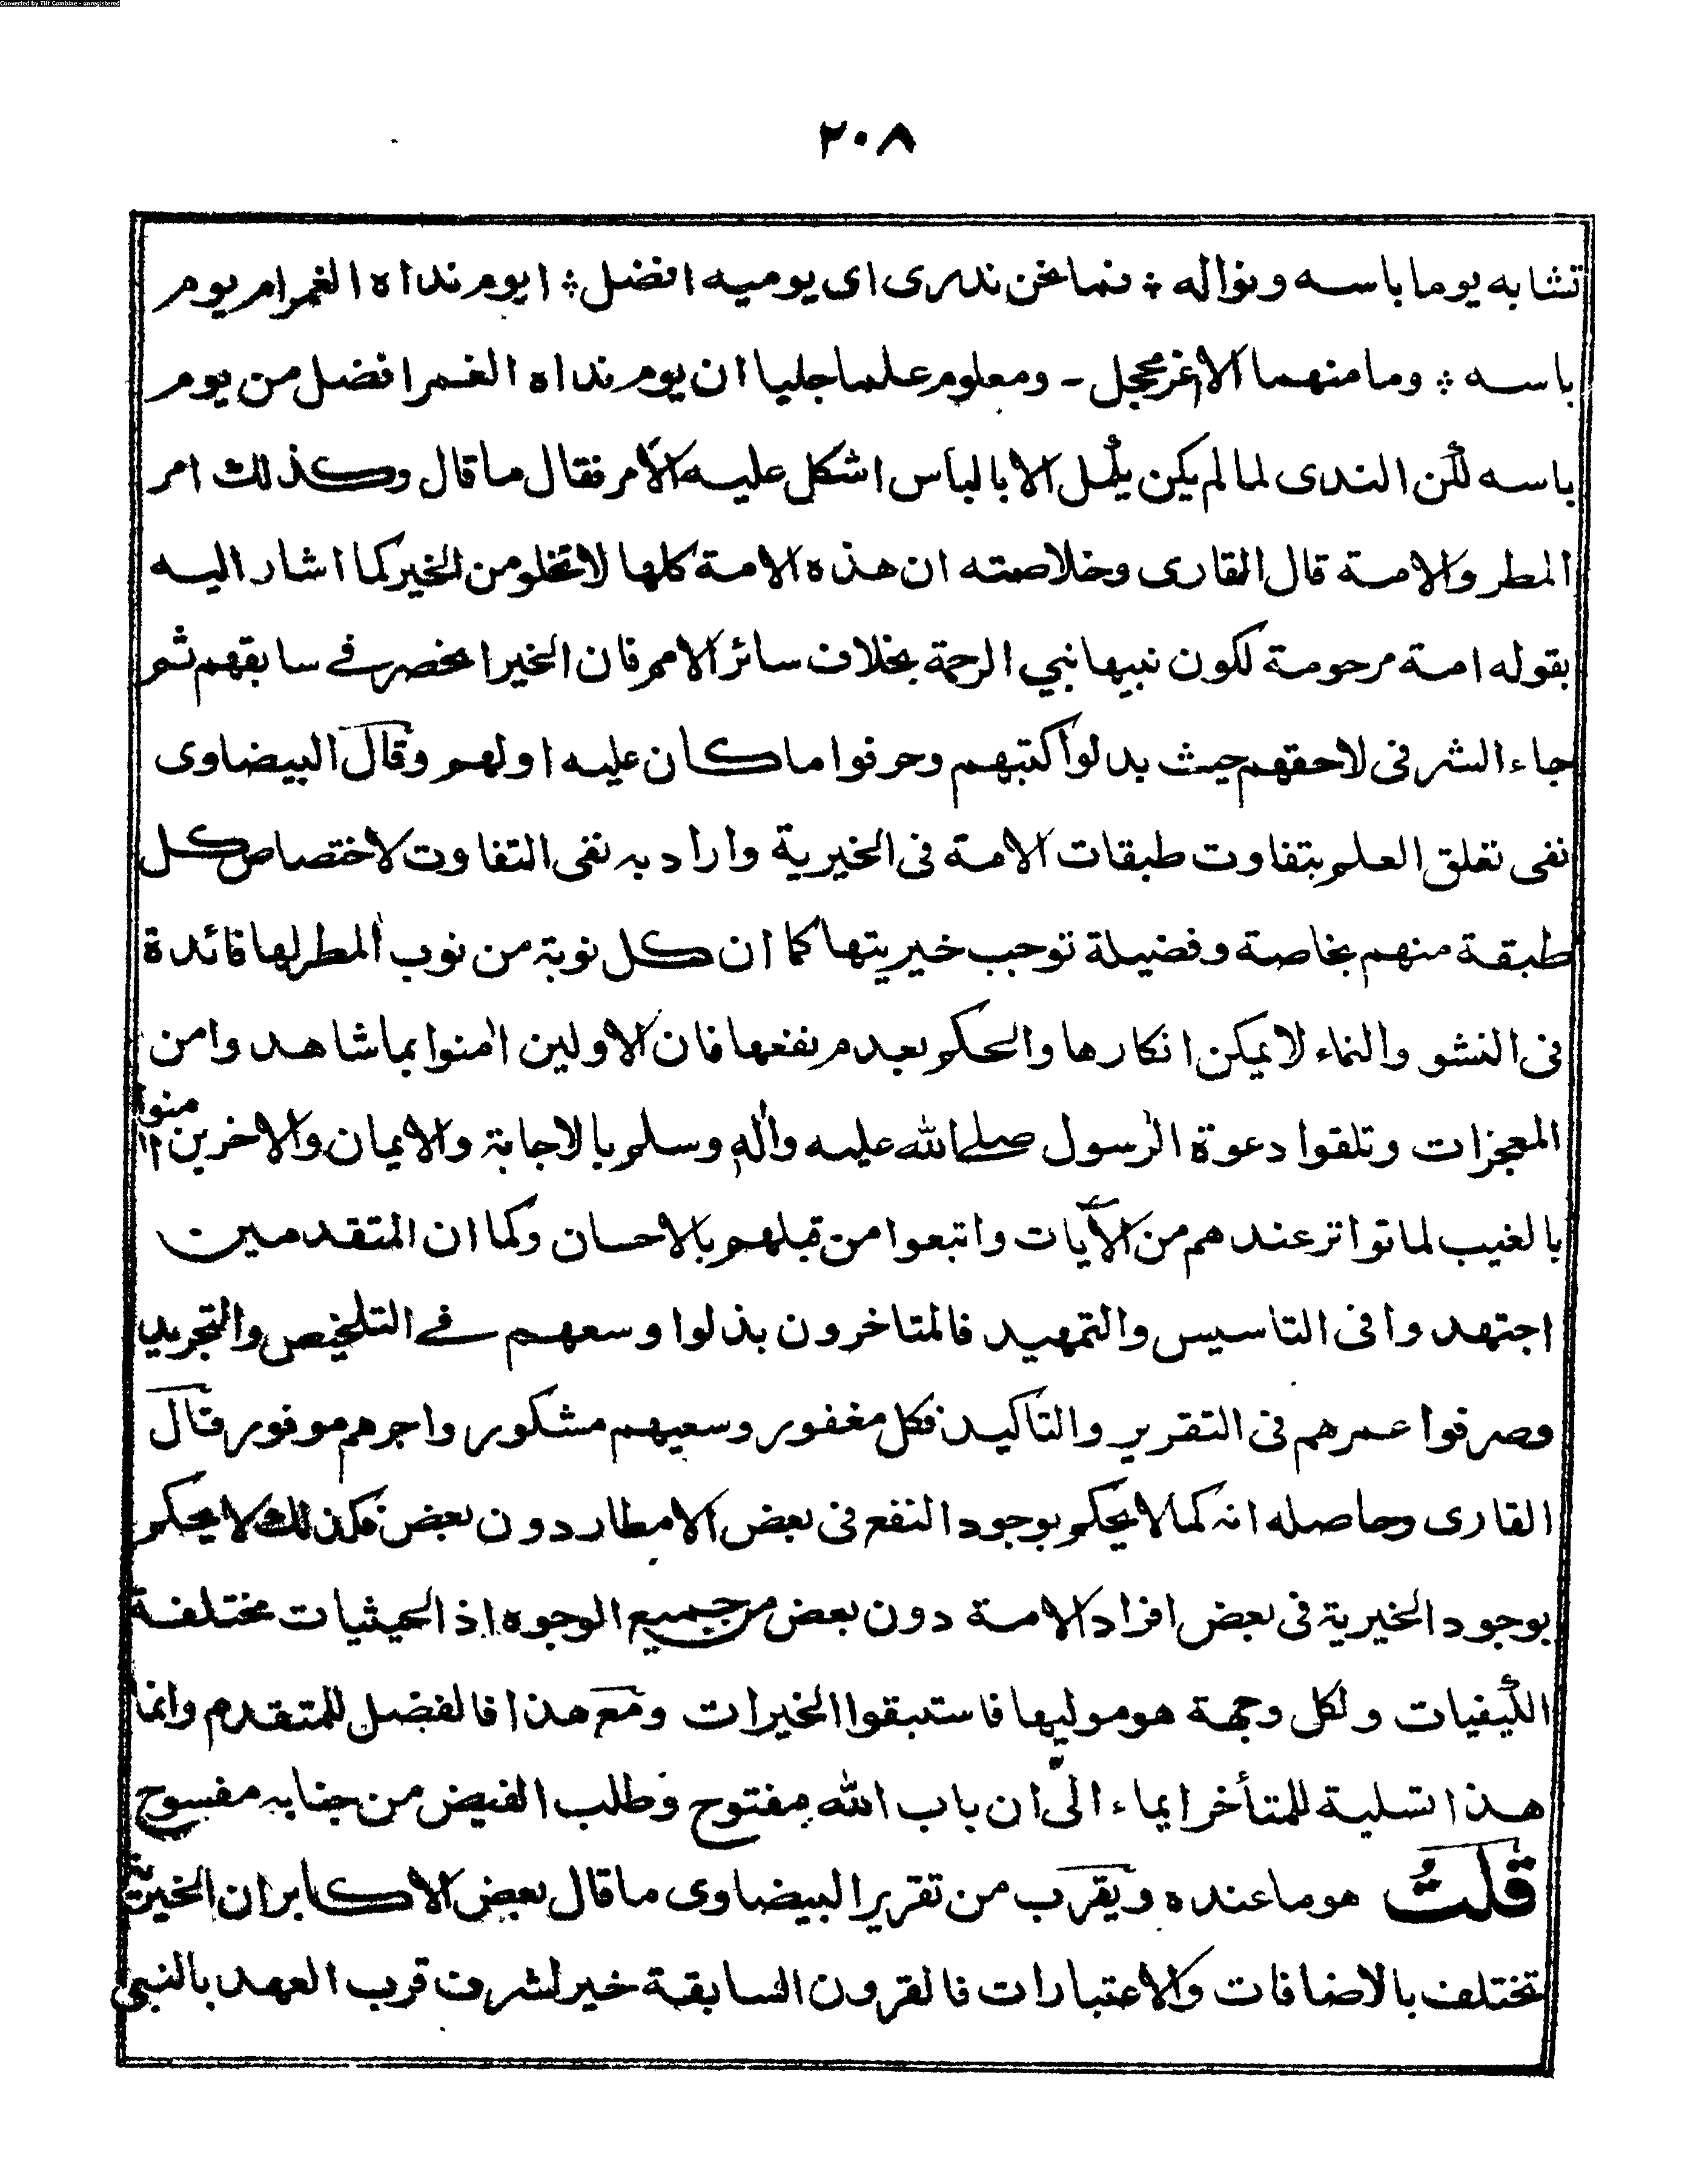 Converted by Tiff Combine - unregistered
٢٠٨
تشابه يوما باسه ونواله ؞ فما نحن ندرى اى يوميه افضل ؞ ايوم نداه الغمر ام يوم
باسه ؞ وما منهما الا اغر محجل ـ ومعلوم علما جليا ان يوم نداه الغمر افضل من يوم
باسه لكن الندى لما لم يكن يكمل الا بالباس اشكل عليه الامر فقال ما قال وكذلك امر
المطر والامة قال القارى وخلاصته ان هذه الامة كلها لا تخلو من الخير كما اشار اليه
بقوله امة مرحومة لكون نبيها نبي الرحمة بخلاف سائر الامم فان الخير انحصر فے سابقهم ثم
جاء الشر فى لاحقهم حيث بدلوا كتبهم وحرفوا ما كان عليه اولهم وقال البيضاوى
نفى تعلق العلم بتفاوت طبقات الامة فى الخيرية واراد به نفى التفاوت لاختصاص كل
طبقة منهم بخاصة وفضيلة توجب خيريتها كما ان كل نوبة من نوب المطر لها فائدة
فى النشو والنماء لا يمكن انكارها والحكم بعدم نفعها فان الاولين اٰمنوا بما شاهدوا من
المعجزات وتلقوا دعوة الرسول صلے الله عليه واٰله وسلم بالاجابة والايمان والاخرين اٰمنوا
بالغيب لما تواتر عندهم من الآيات واتبعوا من قبلهم بالاحسان وكما ان المتقدمين
اجتهدوا فى التاسيس والتمهيد فالمتاخرون بذلوا وسعهم فے التلخيص والتجريد
وصرفوا عمرهم فى التقرير والتاكيد فكل مغفور وسعيهم مشكور واجرهم موفور قال
القارى وحاصله انه كما لا يحكم بوجود النفع فى بعض الامطار دون بعض فكذلك لا يحكم
بوجود الخيرية فى بعض افراد الامة دون بعض من جميع الوجوه اذ الحيثيات مختلفة
الكيفيات ولكل وجهة هو موليها فاستبقوا الخيرات ومع هذا فالفضل للمتقدم وانما
هذا تسلية للمتأخر ايماء الىٰ ان باب الله مفتوح وطلب الفيض من جنابه مفسوح
قلتُ هو ما عنده ويقرب من تقرير البيضاوى ما قال بعض الاكابر ان الخيرية
تختلف بالاضافات والاعتبارات فالقرون السابقة خير لشرف قرب العهد بالنبي